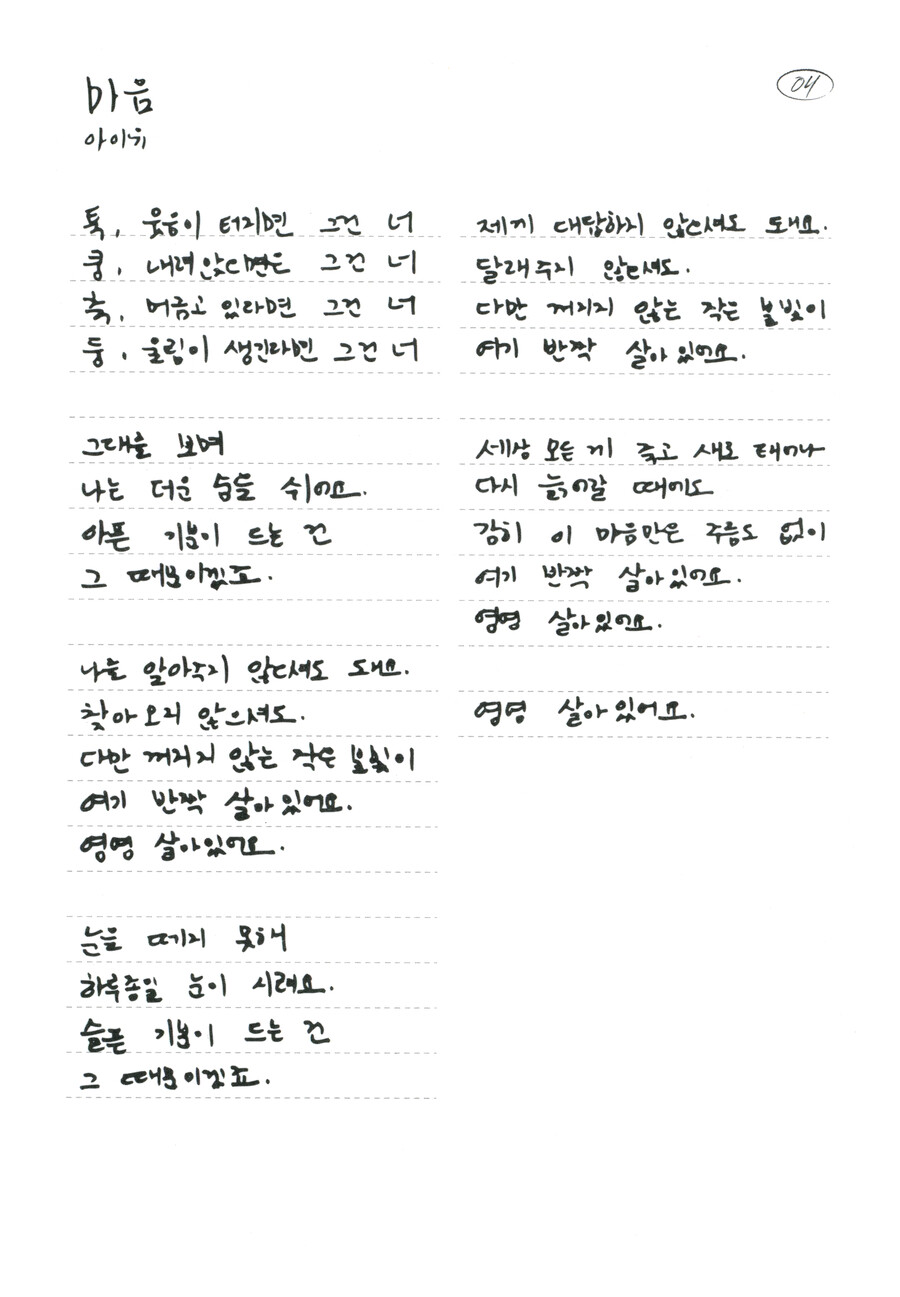 마음
아이유
04
툭, 웃음이 터지면 그건 너
쿵, 내려앉으면은 그건 너
축, 머금고 있다면 그건 너
둥, 울림이 생긴다면 그건 너
그대를 보며
나는 더운 숨을 쉬어요.
아픈 기분이 드는 건
그 때문이겠죠.
나를 알아주지 않으셔도 돼요.
찾아오지 않으셔도.
다만 꺼지지 않는 작은 불빛이
여기 반짝 살아있어요.
영영 살아있어요.
눈을 떼지 못해
하루종일 눈이 시려요.
슬픈 기분이 드는 건
그 때문이겠죠.
제게 대답하지 않으셔도 돼요.
달래주지 않으셔도.
다만 꺼지지 않는 작은 불빛이
여기 반짝 살아있어요.
세상 모든 게 죽고 새로 태어나
다시 늙어갈 때에도
감히 이 마음만은 주름도 없이
여기 반짝 살아있어요.
영영 살아있어요.
영영 살아있어요.